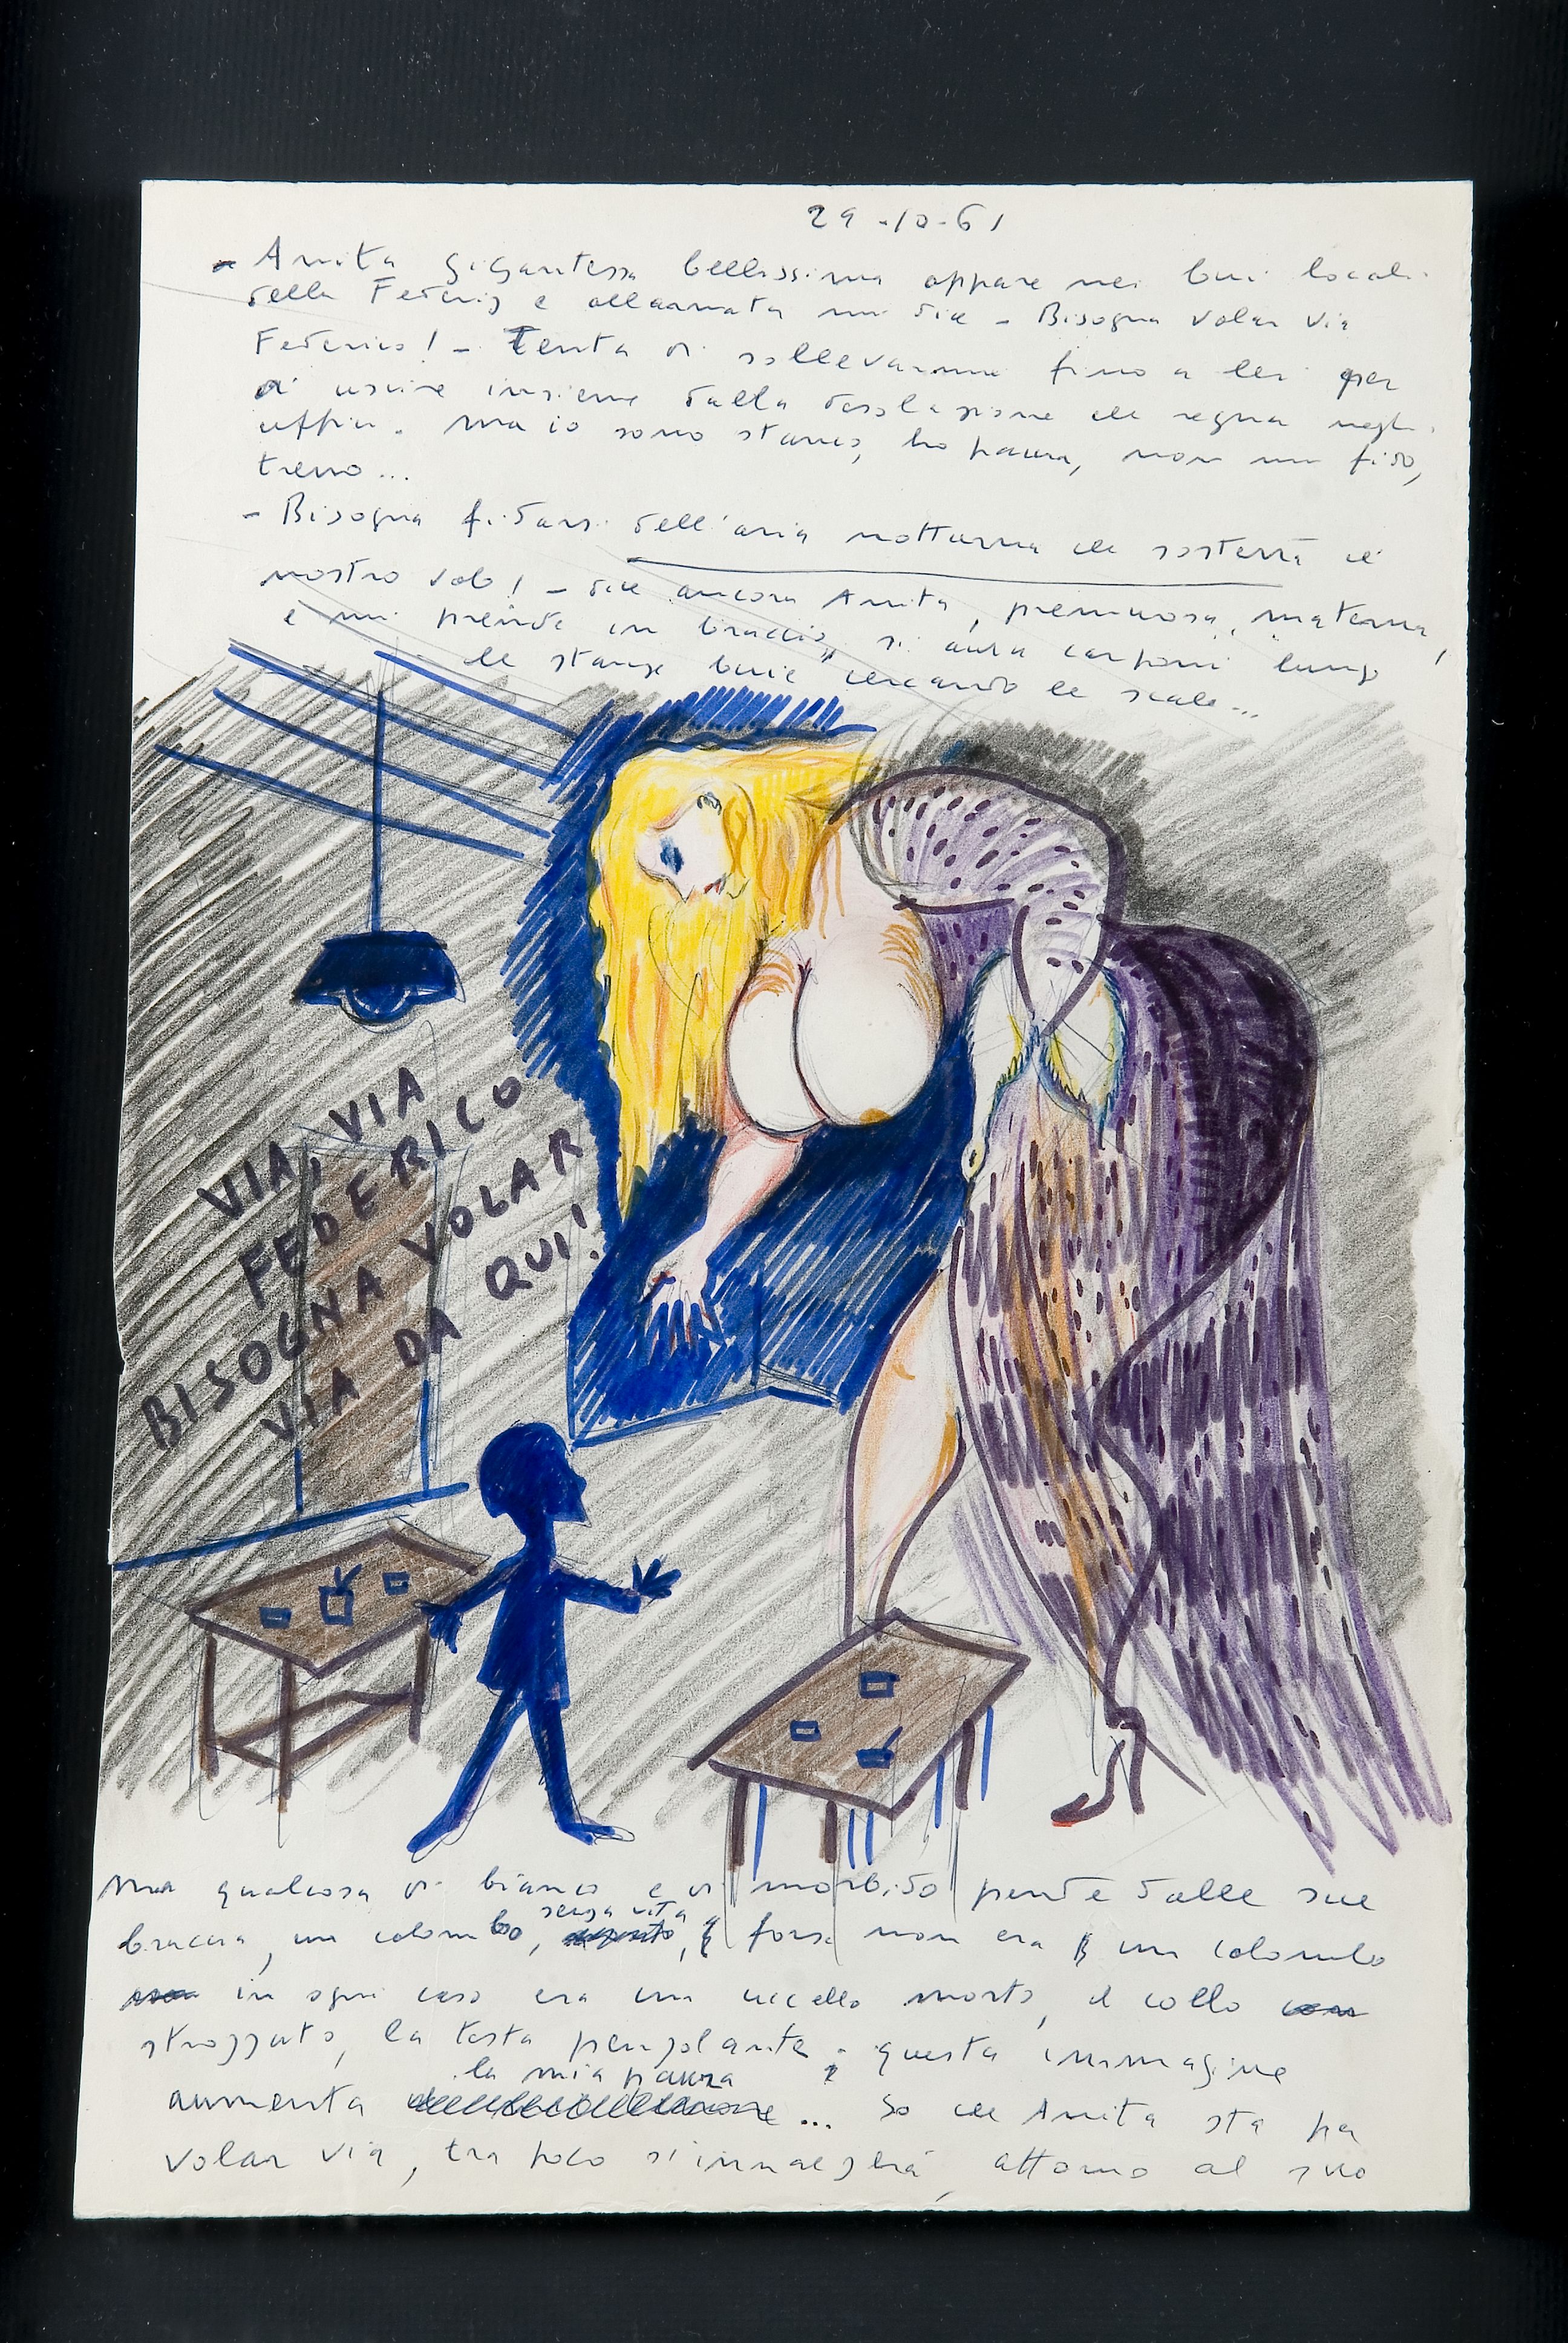 29-10-61
- Anita gigantessa bellissima appare nei bui locali
della Federiz e allarmata mi dice - Bisogna volar via
Federico! - Tenta di sollevarmi fino a lei per
uscire insieme dalla desolazione che regna negli
uffici. Ma io sono stanco, ho paura, non mi fido,
tremo...
- Bisogna fidarsi dell'aria notturna che sosterrà il
nostro volo! - dice ancora Anita, premurosa, materna,
e mi prende in braccio, si avvia carponi lungo
le stanze buie cercando le scale...
VIA, VIA
FEDERICO
BISOGNA VOLAR
VIA DA QUI!
Ma qualcosa di bianco e di morbido pende dalle sue
braccia, un colombo, senza vita, forse non era un colombo
in ogni caso era un uccello morto, il collo
strozzato, la testa penzolante; questa immagine
aumenta la mia paura... So che Anita sta per
volar via, tra poco s'innalzerà, attorno al suo